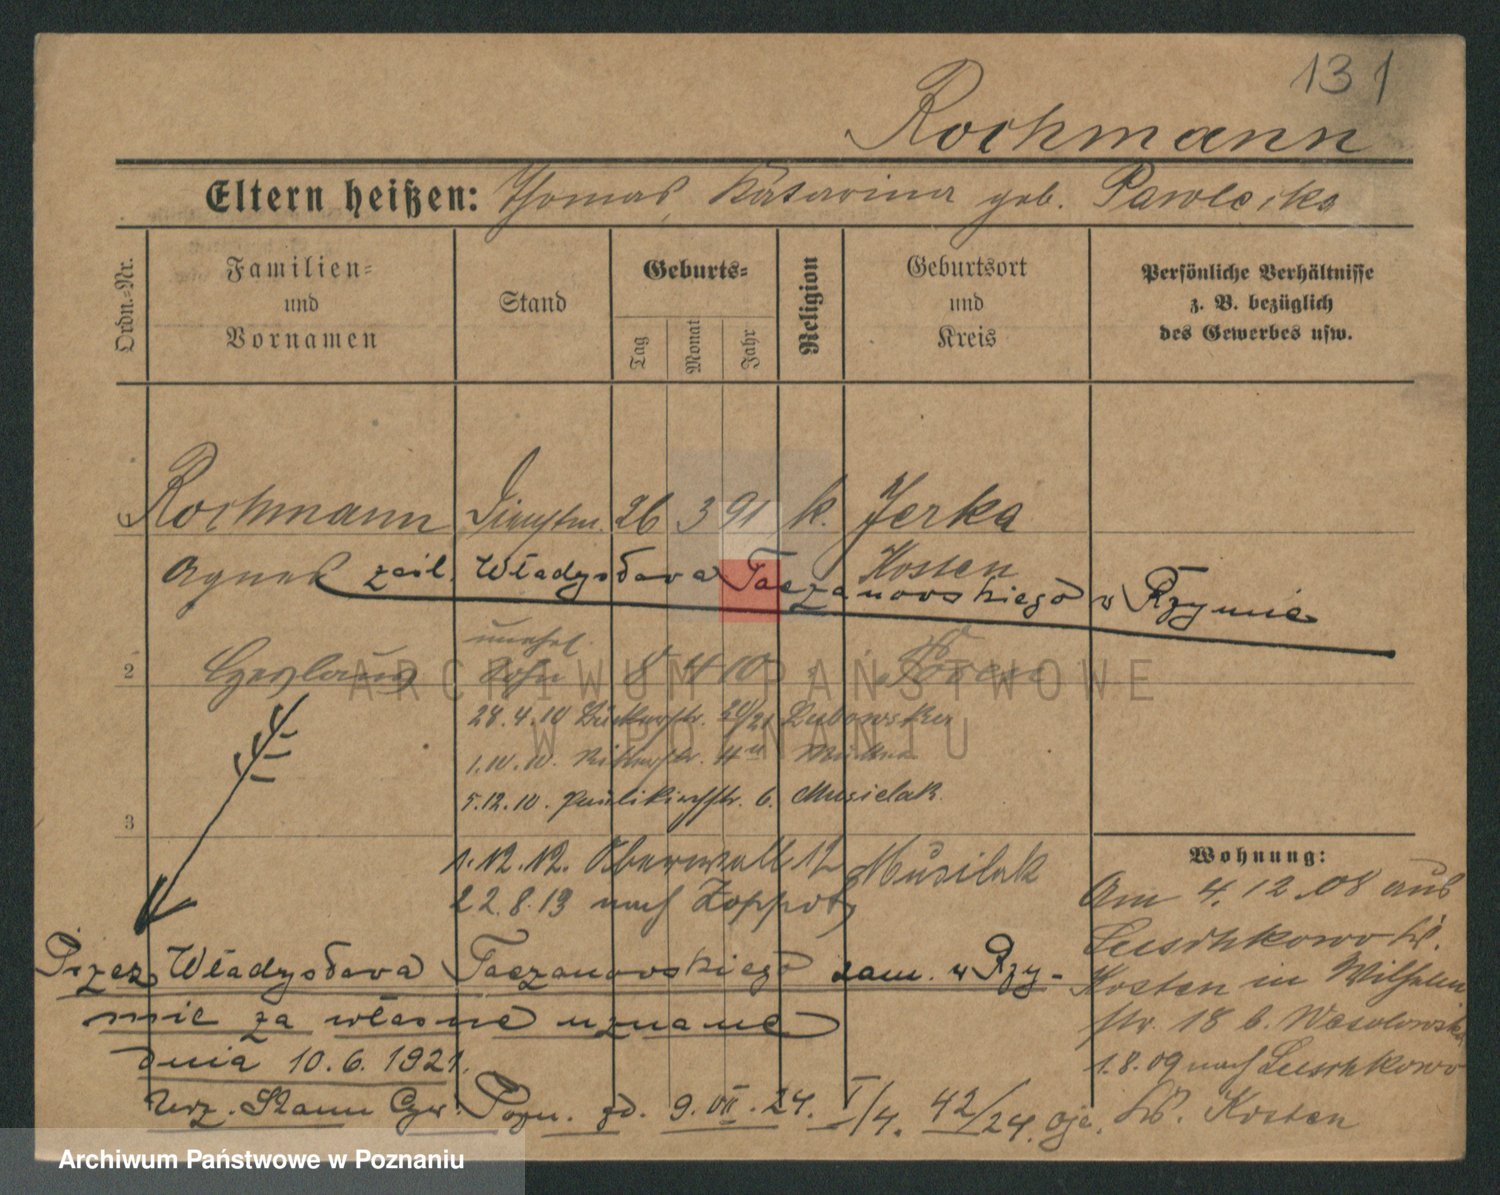 131
Rochmann
Eltern heißen: Thomas, Katarina geb. Pawlecka
Ordn.-Nr.
Familien-
und
Vornamen
Stand
Geburts-
Tag
Monat
Jahr
Religion
Geburtsort
und
Kreis
Persönliche Verhältnisse
z. B. bezüglich
des Gewerbes usw.
Rochmann Dienstm. 26 3 91 k. Jerka
Kosten
Agnes zaśl. Władysława Taczanowskiego w Rzymie
unehel.
2 Czeslaus Sohn 8 4 10 Posen
28.4.10 Bäckerstr. 20/21 Lubowska
1.10.10. Ritterstr. 4
5.12.10. Paulikirchstr. 6. Musielak
3
1.12.12. Oberwall 12 Musilak
22.8.13 nach Zoppot
Wohnung:
Am 4.12.08 aus
Luschkowo Kr.
Kosten in Wilhelm
str. 18 b. Wesolowska
1.8.09 nach Luschkowo
Kr. Kosten
Przez Władysława Taczanowskiego zam. w Rzy-
mie za własne uznane
dnia 10.6.1921.
Urz. Stanu Cyw. Pozn. zd. 9.VII.24. I/4. 42/24.
ARCHIWUM PAŃSTWOWE
W POZNANIU
Archiwum Państwowe w Poznaniu